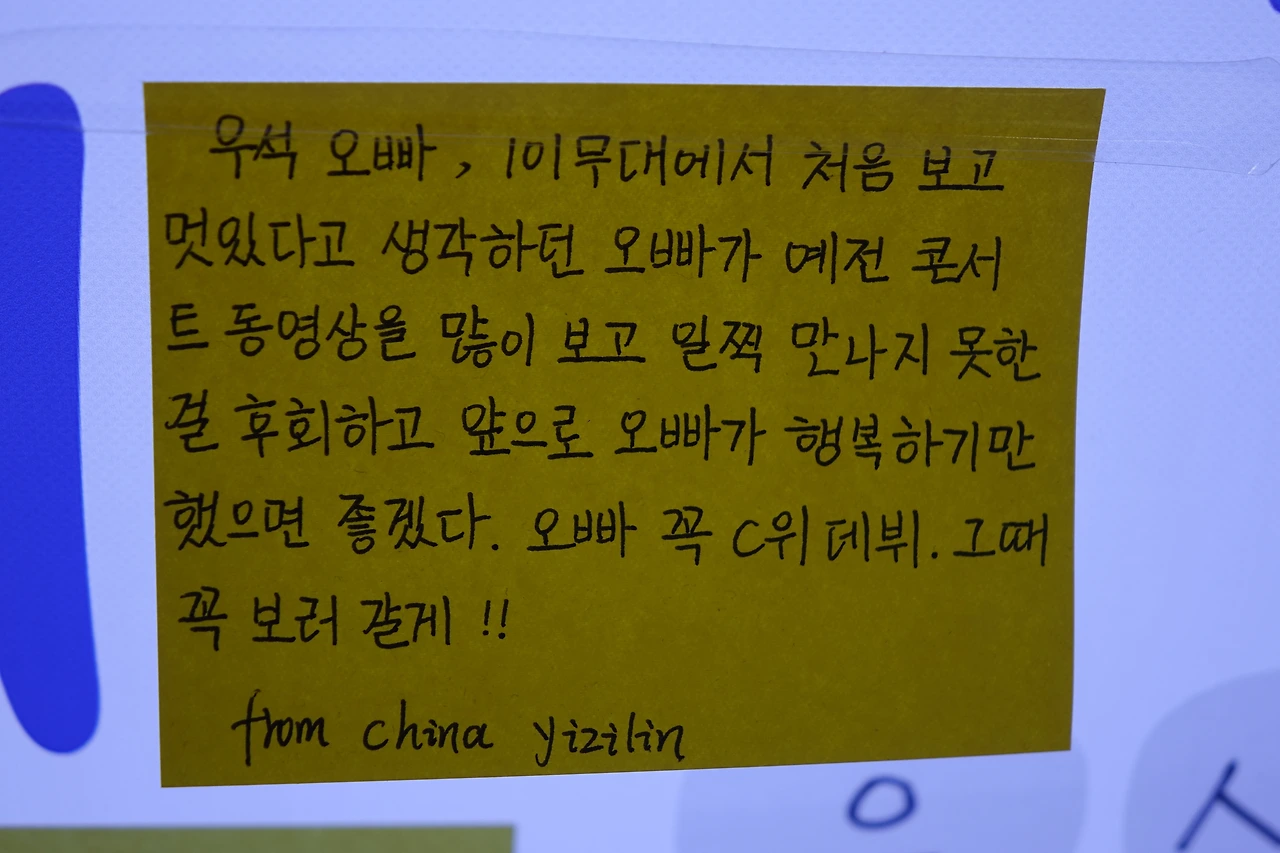 우석 오빠, 1이무대에서 처음 보고
멋있다고 생각하던 오빠가 예전 콘서
트 동영상을 많이 보고 일찍 만나지 못한
걸 후회하고 앞으로 오빠가 행복하기만
했으면 좋겠다. 오빠 꼭 C위 데뷔. 그때
꼭 보러 갈게 !!
from china yizilin